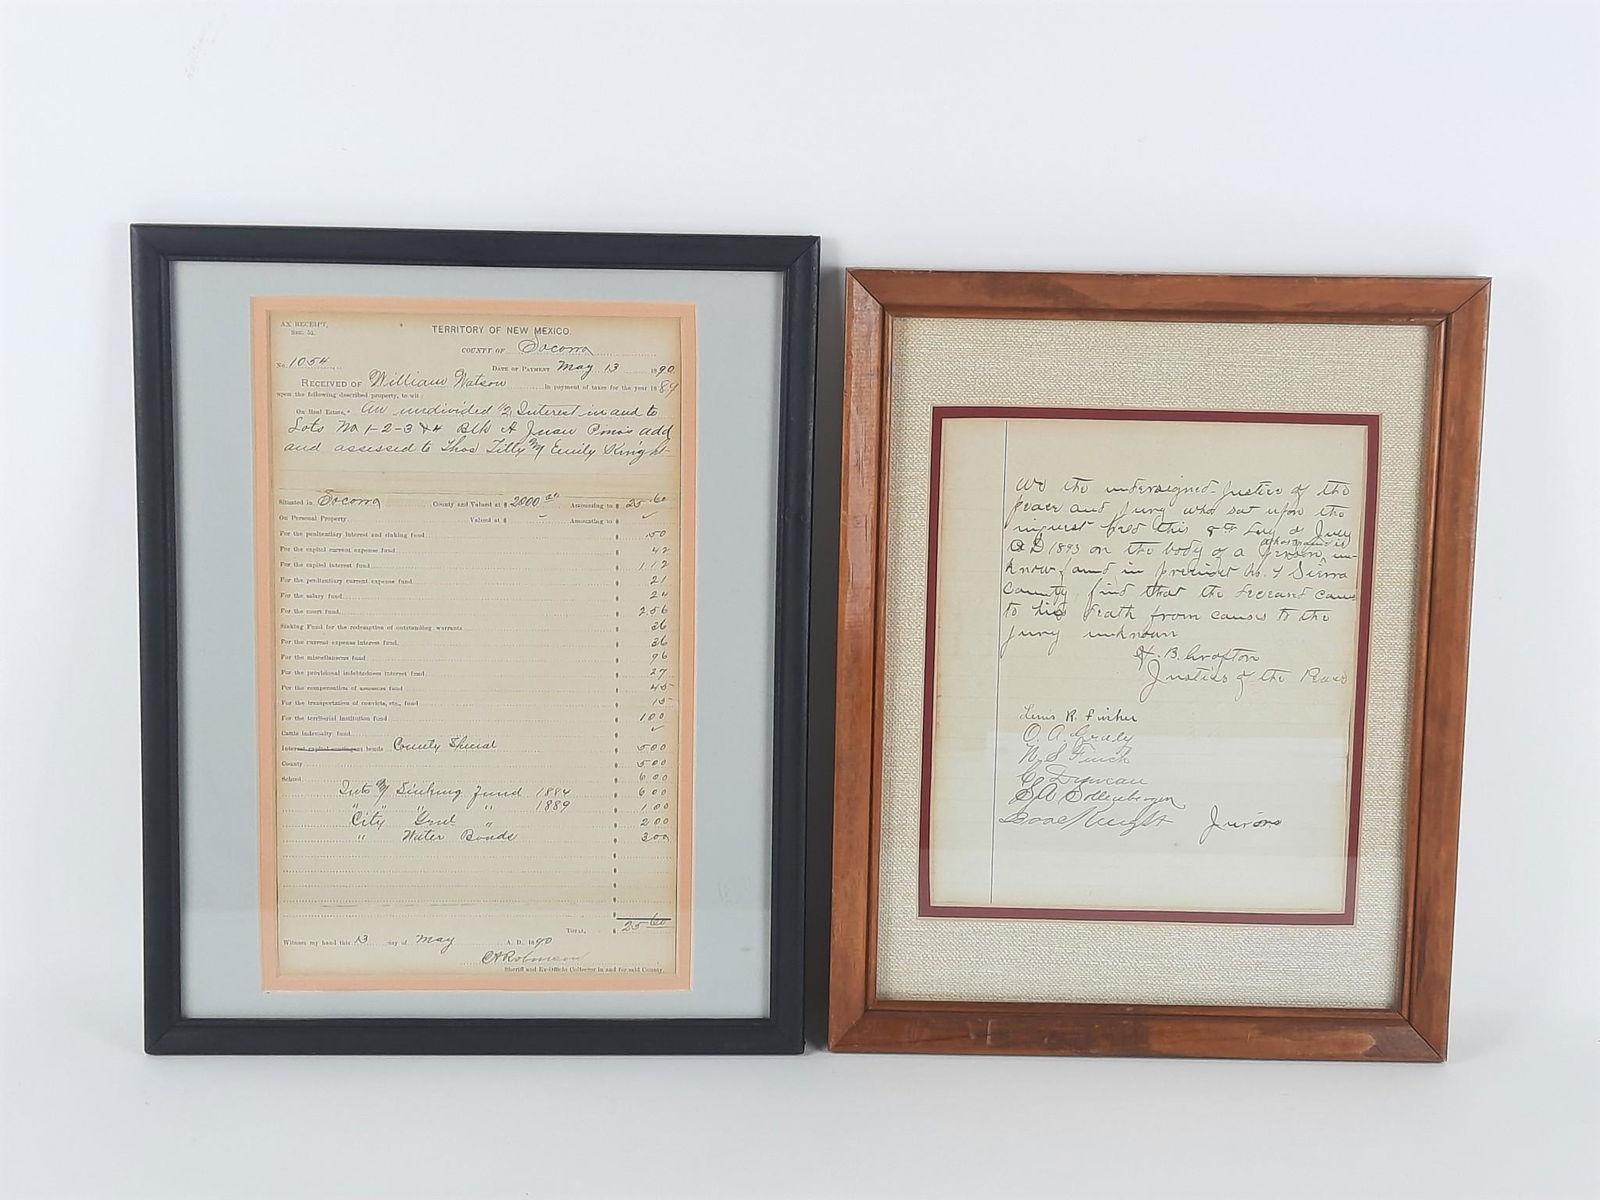 AX RECEIPT,
SEC. 55.
TERRITORY OF NEW MEXICO.
COUNTY OF Socorro
No. 1054
DATE OF PAYMENT May 13 1890
RECEIVED OF William Watson In payment of taxes for the year 1889
upon the following described property, to wit:
On Real Estate, An undivided 1/2 Interest in and to
Lots No 1-2-3 & 4 Blk A Juan add
and assessed to Thos Tilly & Emily Knight
Situated in Socorro County and Valued at $ 2000 00 Amounting to $ 25 60
On Personal Property. Valued at $ Amounting to $
For the penitentiary interest and sinking fund 50
For the capital current expense fund 42
For the capital interest fund 1.12
For the penitentiary current expense fund 21
For the salary fund 24
For the court fund 2.56
Sinking Fund for the redemption of outstanding warrants 36
For the current expense interest fund 36
For the miscellaneous fund 96
For the provisional indebtedness interest fund 27
For the compensation of assessors fund 45
For the transportation of convicts, etc., fund 15
For the territorial institution fund 100
Cattle indemnity fund
Interest capital contingent bonds County Special 500
County 500
School 600
Ints & Sinking Fund 1884 600
" " " " 1889 1.00
City " 200
" Water Bonds 300
TOTAL, $ 25 60
Witness my hand this 13 day of May A. D. 1890
C A Robinson
Sheriff and Ex-Officio Collector in and for said County.
We the undersigned Justice of the
peace and Jury who sat upon the
inquest held this 9th day of July
AD 1893 on the body of a person, un-
known found in precinct No. Sierra
County find that the deceased came
to his death from causes to the
Jury unknown
H. B. Crofton
Justice of the Peace
Lewis R. Fisher
O. A. Graly
N. S. Finch
C Duncan
S A Sollenberger
Isaac Knight Jurors